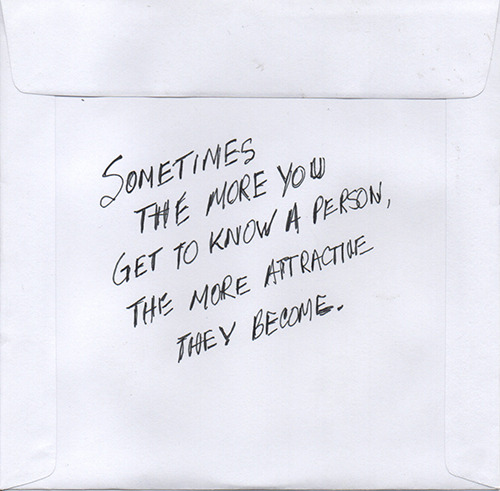 SOMETIMES
THE MORE YOU
GET TO KNOW A PERSON,
THE MORE ATTRACTIVE
THEY BECOME.